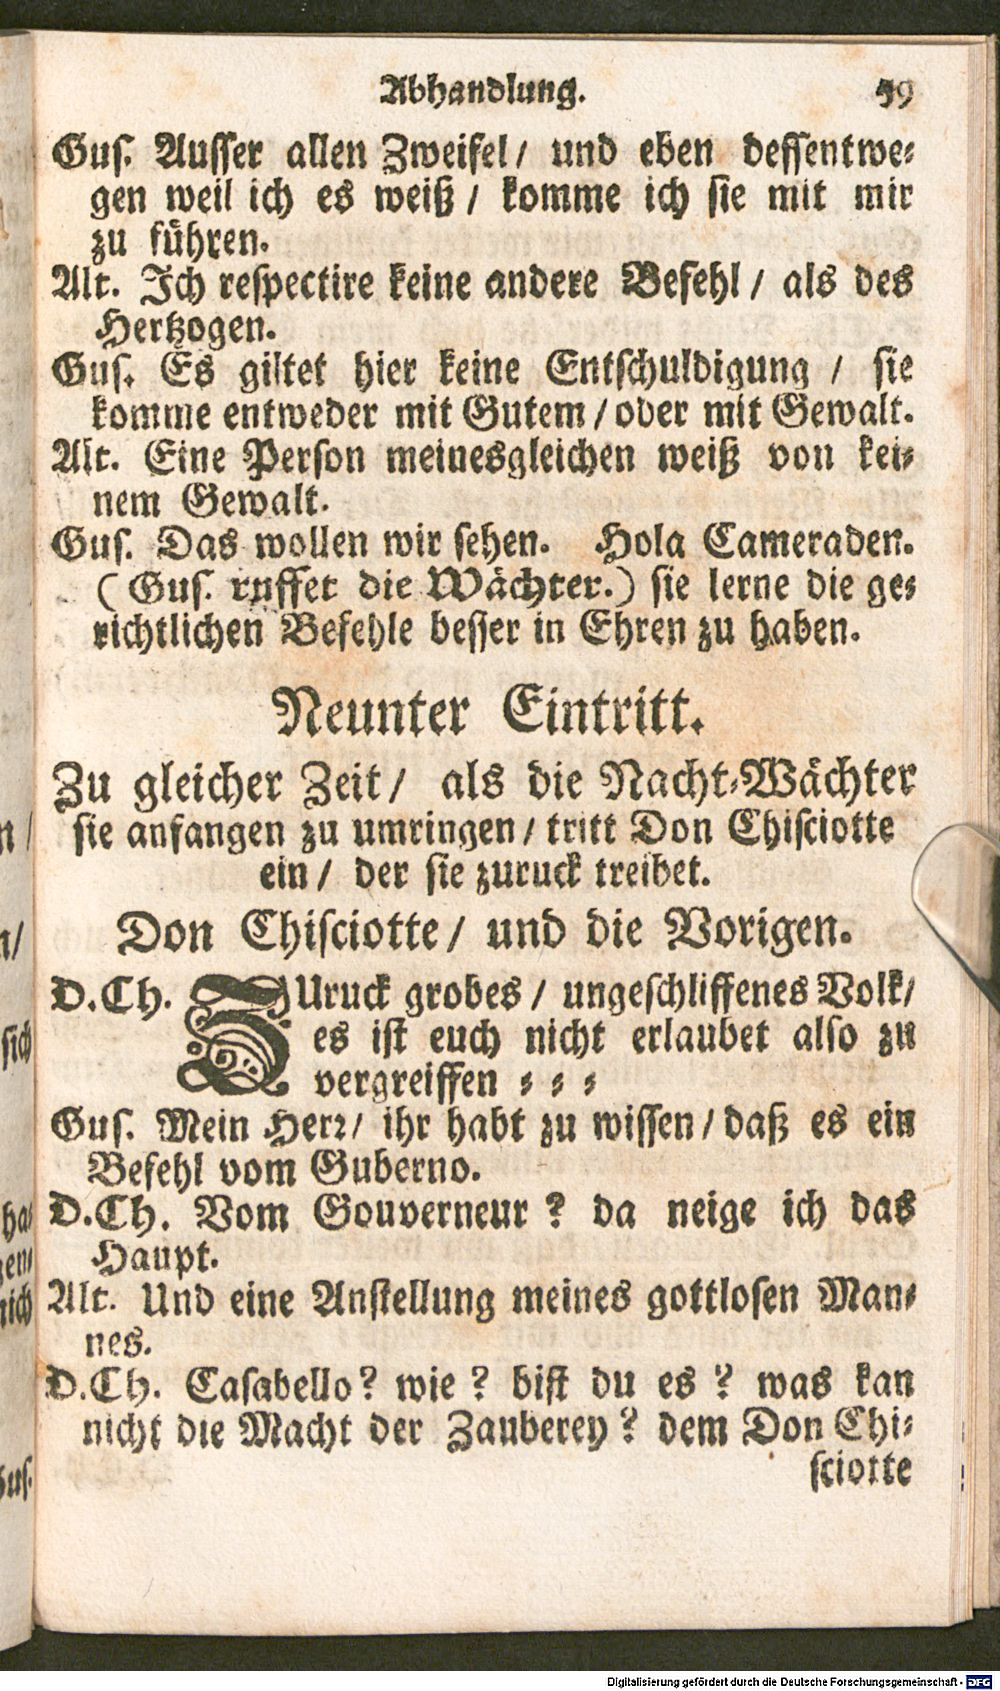 Abhandlung. 59
Gus. Ausser allen Zweifel / und eben dessentwe-
gen weil ich es weiß / komme ich sie mit mir
zu führen.
Alt. Ich respectire keine andere Befehl / als des
Hertzogen.
Gus. Es giltet hier keine Entschuldigung / sie
komme entweder mit Gutem / oder mit Gewalt.
Alt. Eine Person meinesgleichen weiß von kei-
nem Gewalt.
Gus. Das wollen wir sehen. Hola Cameraden.
( Gus. ruffet die Wächter. ) sie lerne die ge-
richtlichen Befehle besser in Ehren zu haben.
Neunter Eintritt.
Zu gleicher Zeit / als die Nacht-Wächter
sie anfangen zu umringen / tritt Don Chisciotte
ein / der sie zuruck treibet.
Don Chisciotte / und die Vorigen.
D. Ch. ZUruck grobes / ungeschliffenes Volk /
es ist euch nicht erlaubet also zu
vergreiffen - - -
Gus. Mein Herr / ihr habt zu wissen / daß es ein
Befehl vom Guberno.
D. Ch. Vom Gouverneur ? da neige ich das
Haupt.
Alt. Und eine Anstellung meines gottlosen Man-
nes.
D. Ch. Casabello ? wie ? bist du es ? was kan
nicht die Macht der Zauberey ? dem Don Chi-
sciotte
n /
n /
sich
ha-
gen-
nich
Gus.
Digitalisierung gefördert durch die Deutsche Forschungsgemeinschaft - DFG